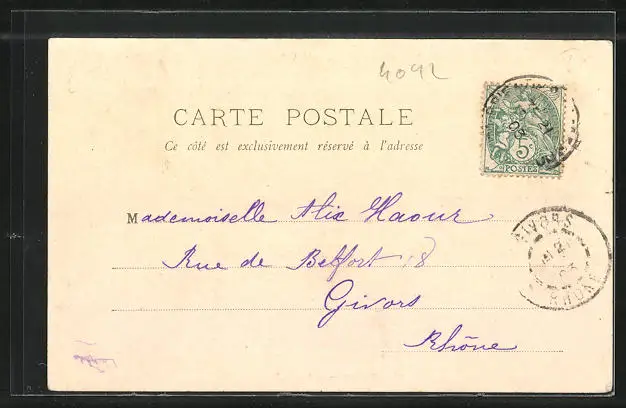 4092
CARTE POSTALE
Ce côté est exclusivement réservé à l'adresse
5c
POSTES
Mademoiselle Alix Haour
Rue de Belfort 18
Givors
Rhône
GIVORS
RHONE